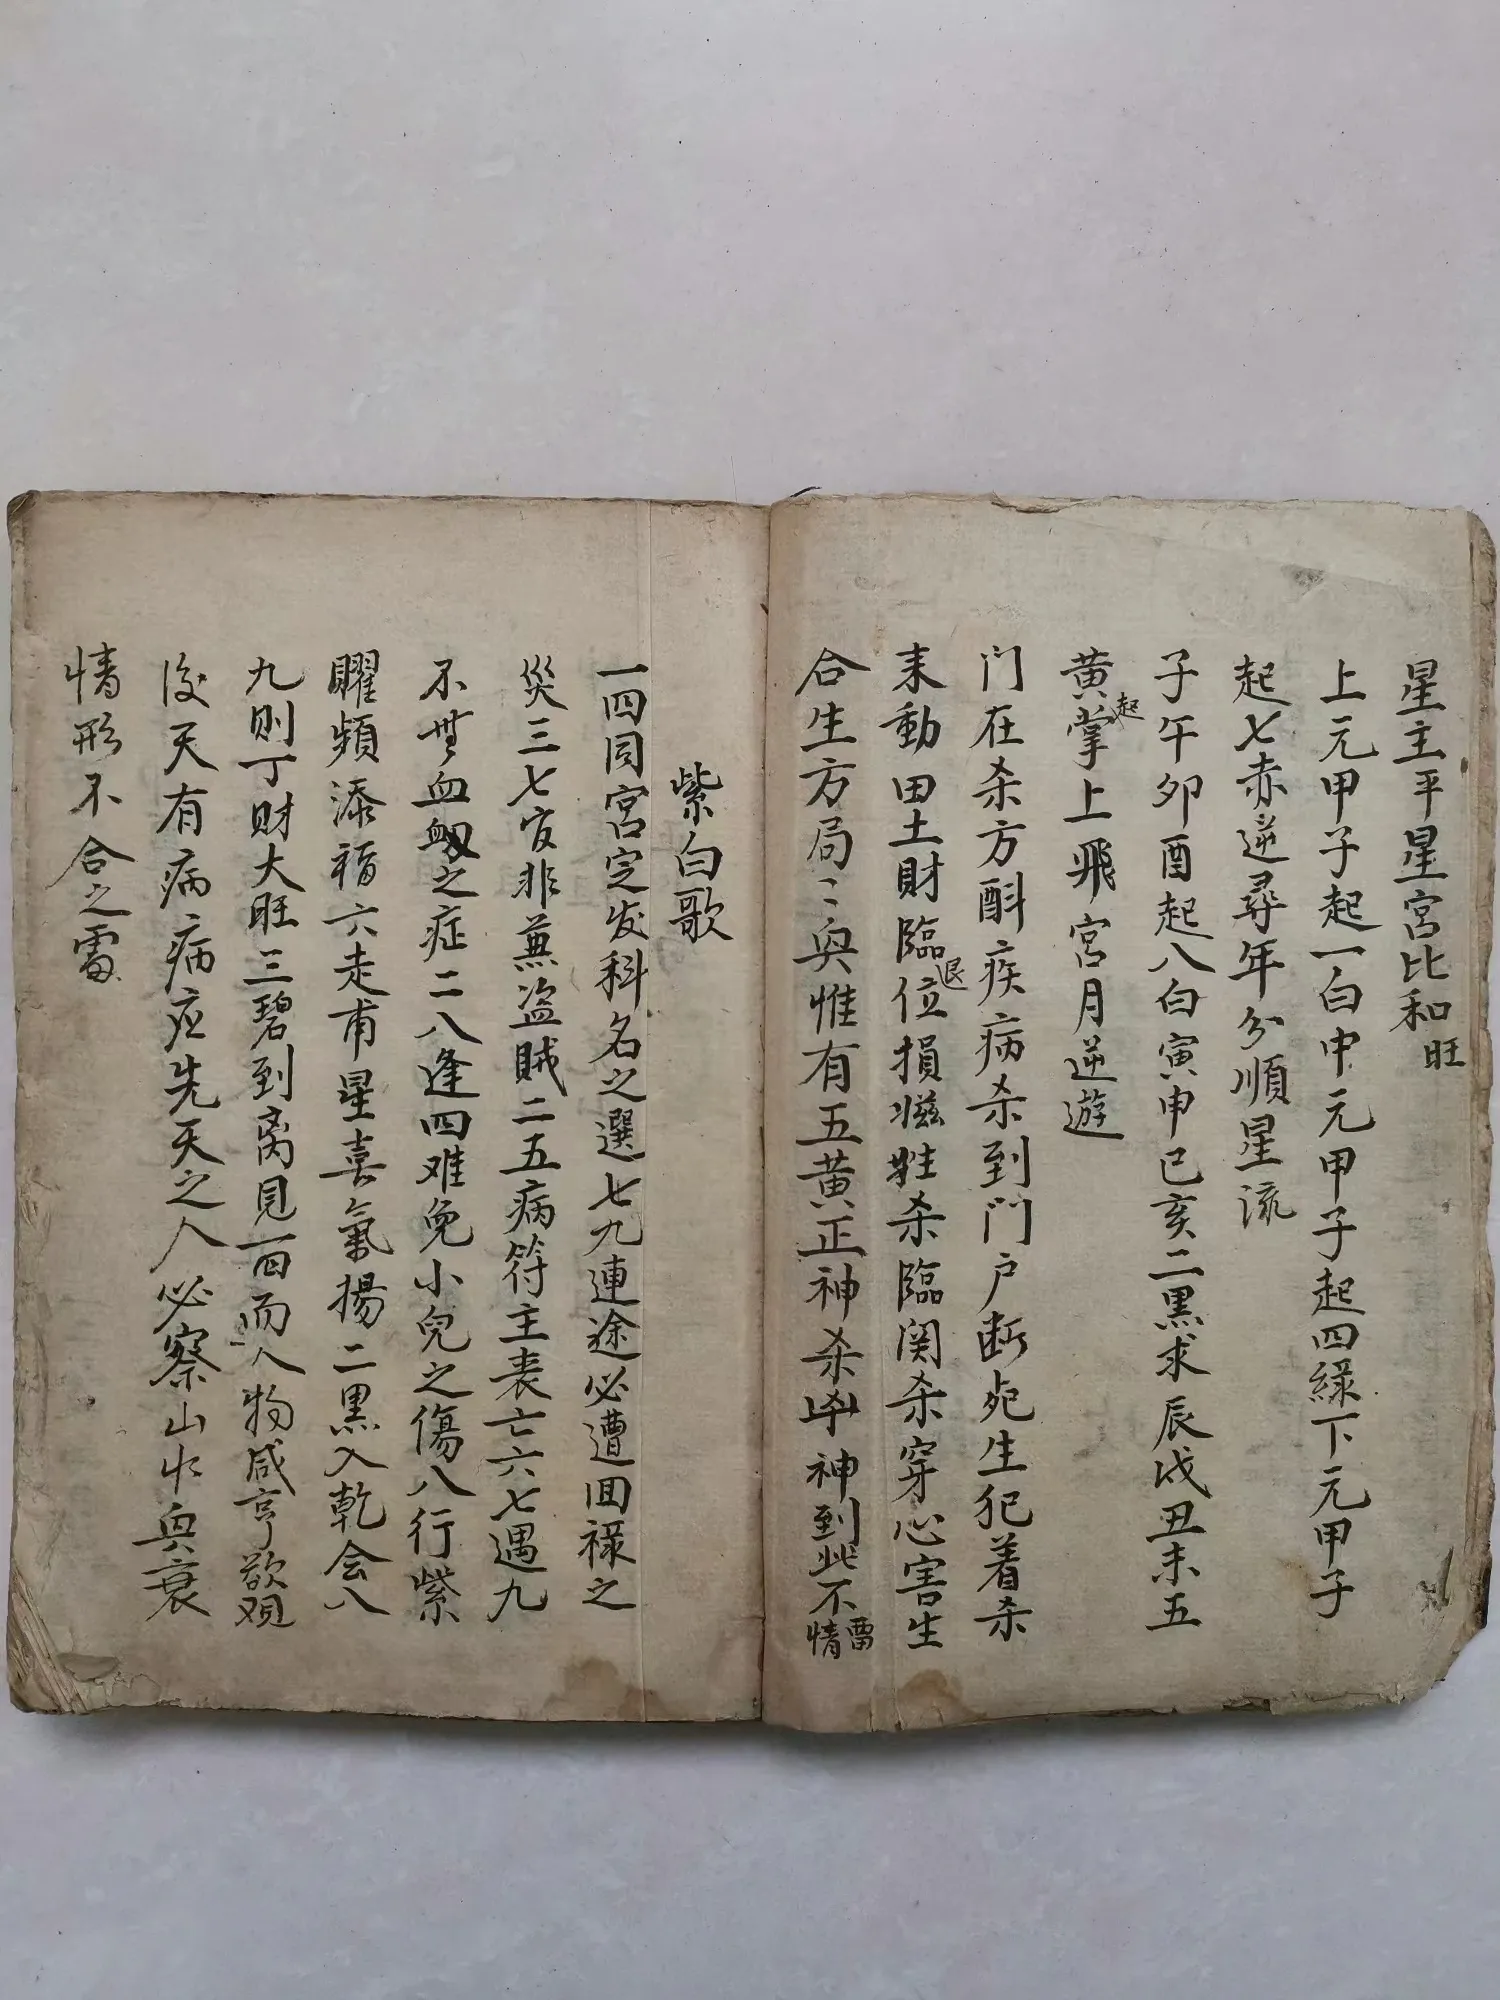 星主平星宮比和旺
上元甲子起一白中元甲子起四緑下元甲子
起七赤逆尋年分順星流
子午卯酉起八白寅申已亥二黒求辰戌丑未五
黄起掌上飛宮月逆遊
门在杀方斟疾病杀到门户断死生犯着杀
来動田土財臨退位損滋牲杀臨関杀穿心害生
合生方局〻與惟有五黄正神杀凶神到此不畱情
紫白歌
一四同宮定发科名之選七九連途必遭回禄之
災三七官非兼盗賊二五病符主丧亡六七遇九
不世血衂之症二八逢四难免小兒之傷八行紫
曜頻添福六走甫星喜氣揚二黒入乾会八
九則丁財大旺三碧到离見一四而人物咸亨欲观
後天有病病症先天之人必察山水與衰
情形不合之處